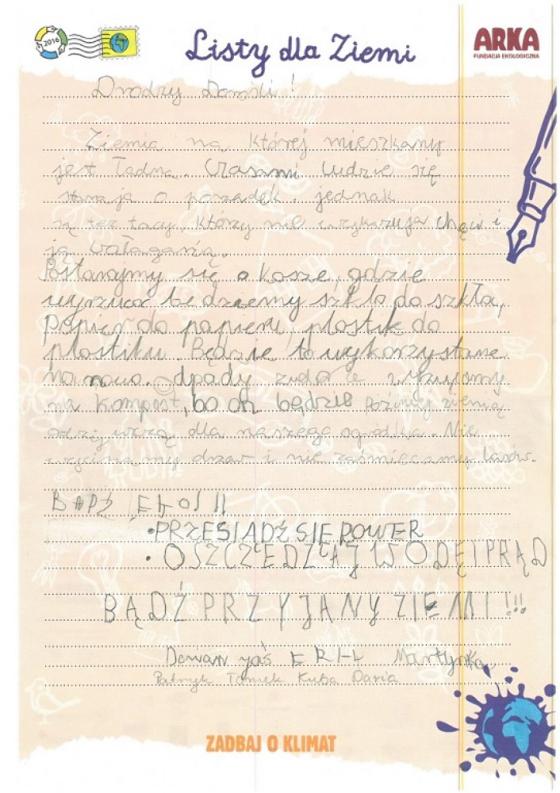 2016
Listy dla Ziemi
ARKA
FUNDACJA EKOLOGICZNA
Drodzy !
Ziemia na której mieszkamy
jest ładna. Czasami ludzie się
starają o porządek. jednak
są też tacy, którzy nie wykazują chęci i
ją
Postarajmy się o kosze, gdzie
wyrzucać będziemy szkło do szkła,
Papier do papieru, plastik do
plastiku. Będzie to wykorzystane
na nowo. Odpady
na kompost, bo on będzie
dla naszego ogródka. Nie
drzew i nie zaśmiecajmy lasów.
BĄDŹ EKO!!
•PRZESIĄDŹ SIE POWER
• OSZCZĘDZAJ WODĘ I PRĄD
BĄDŹ PRZYJANY ZIEMI!!!
ERIK Martynka
Patryk Tomek Kuba Daria
ZADBAJ O KLIMAT